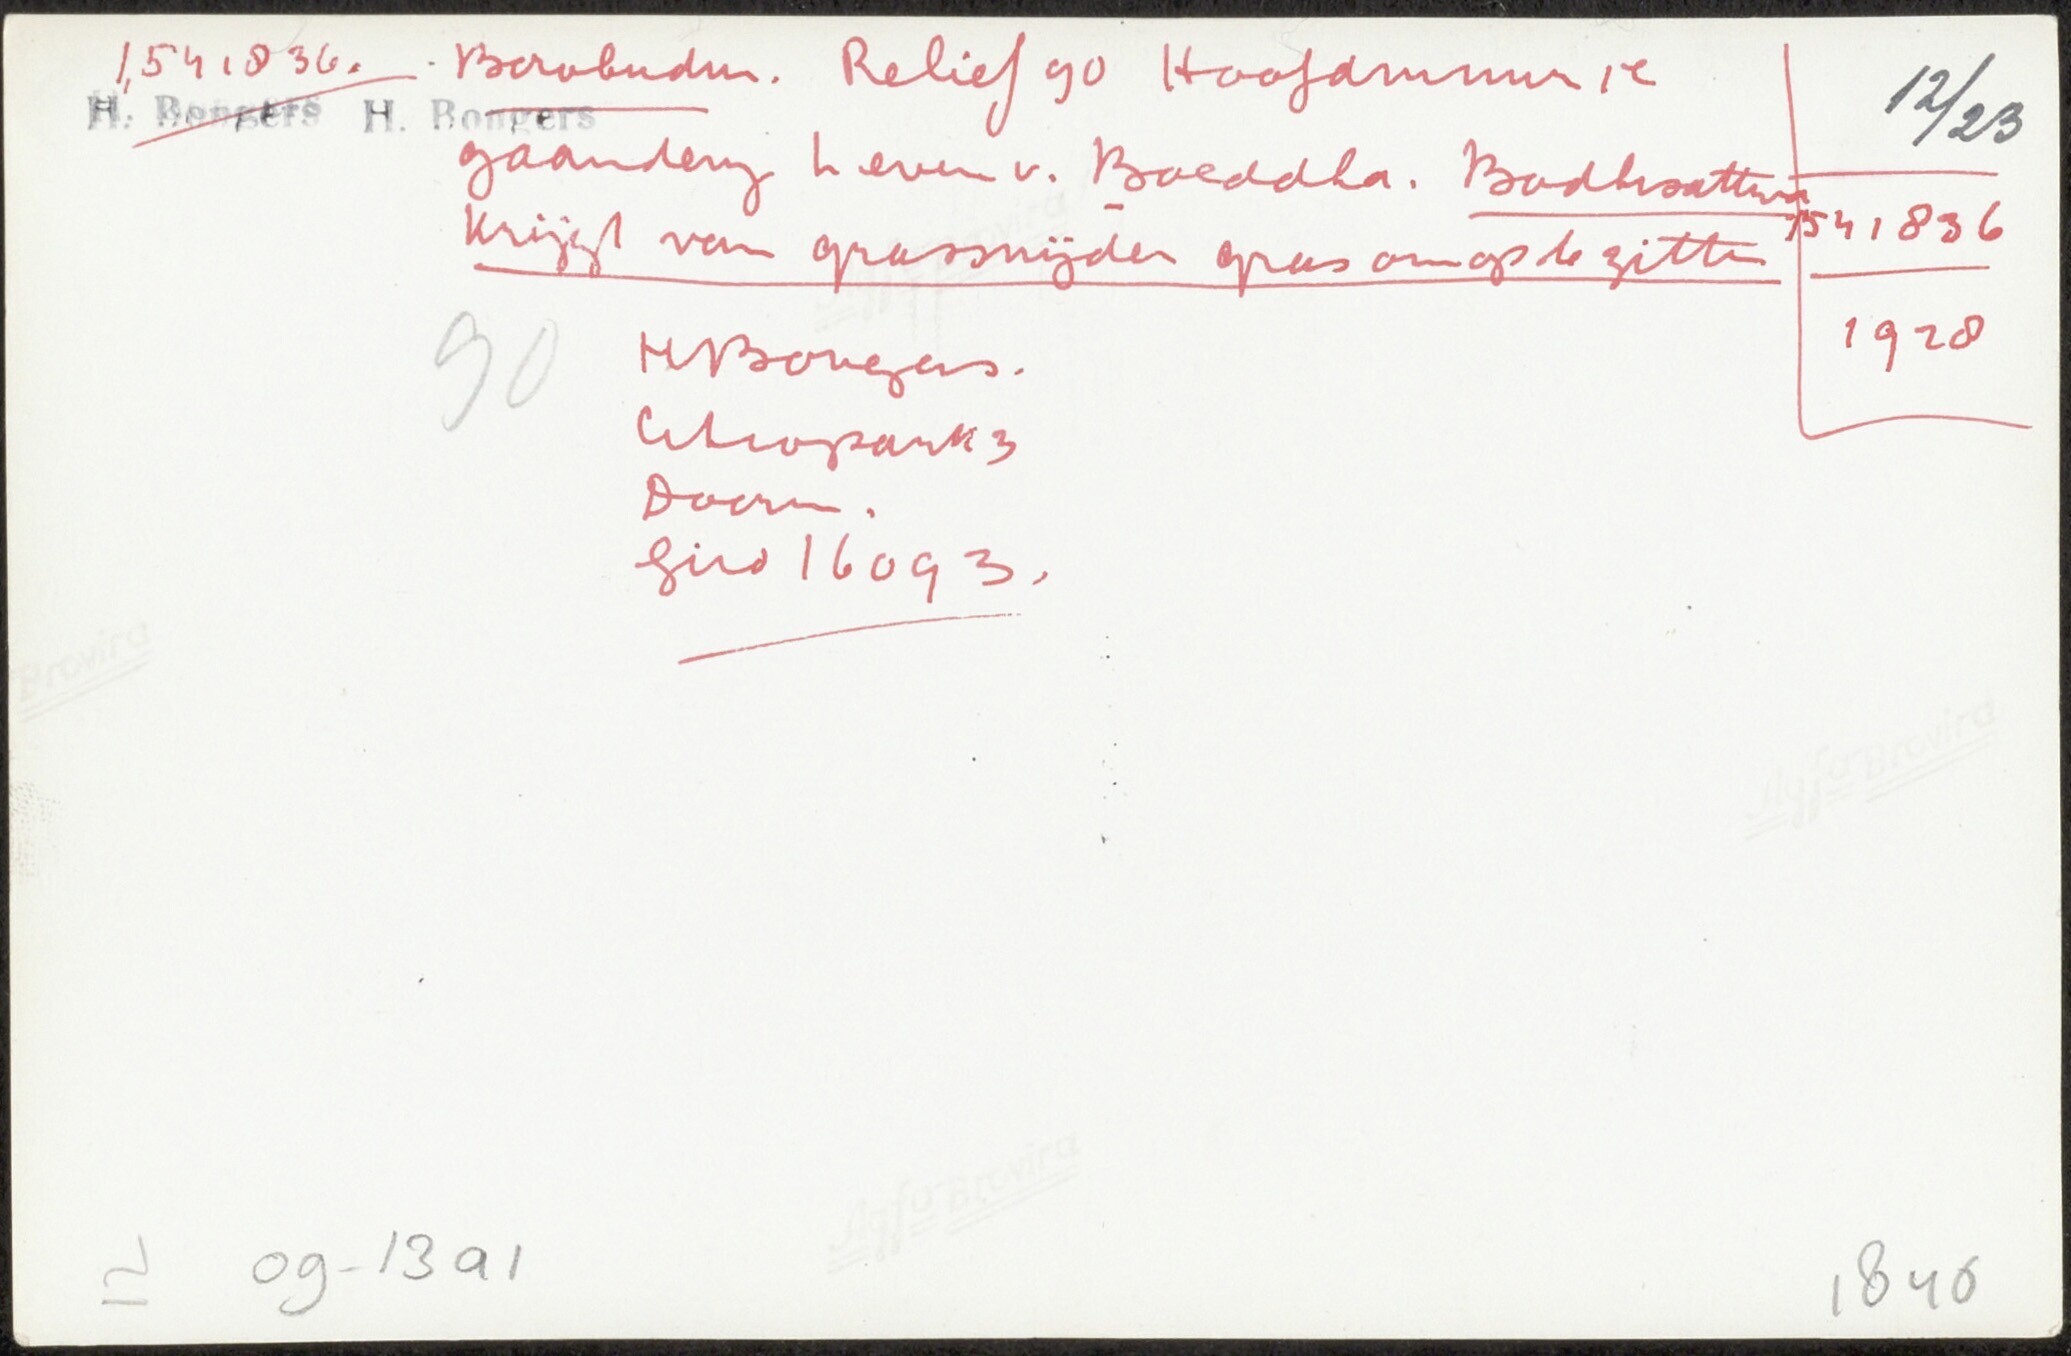 1,541836. Borobudur. Relief 90 Hoofdmuur 1e
H. Bongers H. Bongers
gaanderij Leven v. Boeddha. Bodhisattva
Krijgt van grassnijder gras om op te zitten
12/23
1541836
1928
90
H Bongers.
park 3
Doorn.
Giro 16093.
Brovira
Agfa Brovira
Agfa Brovira
og-13a1
1846